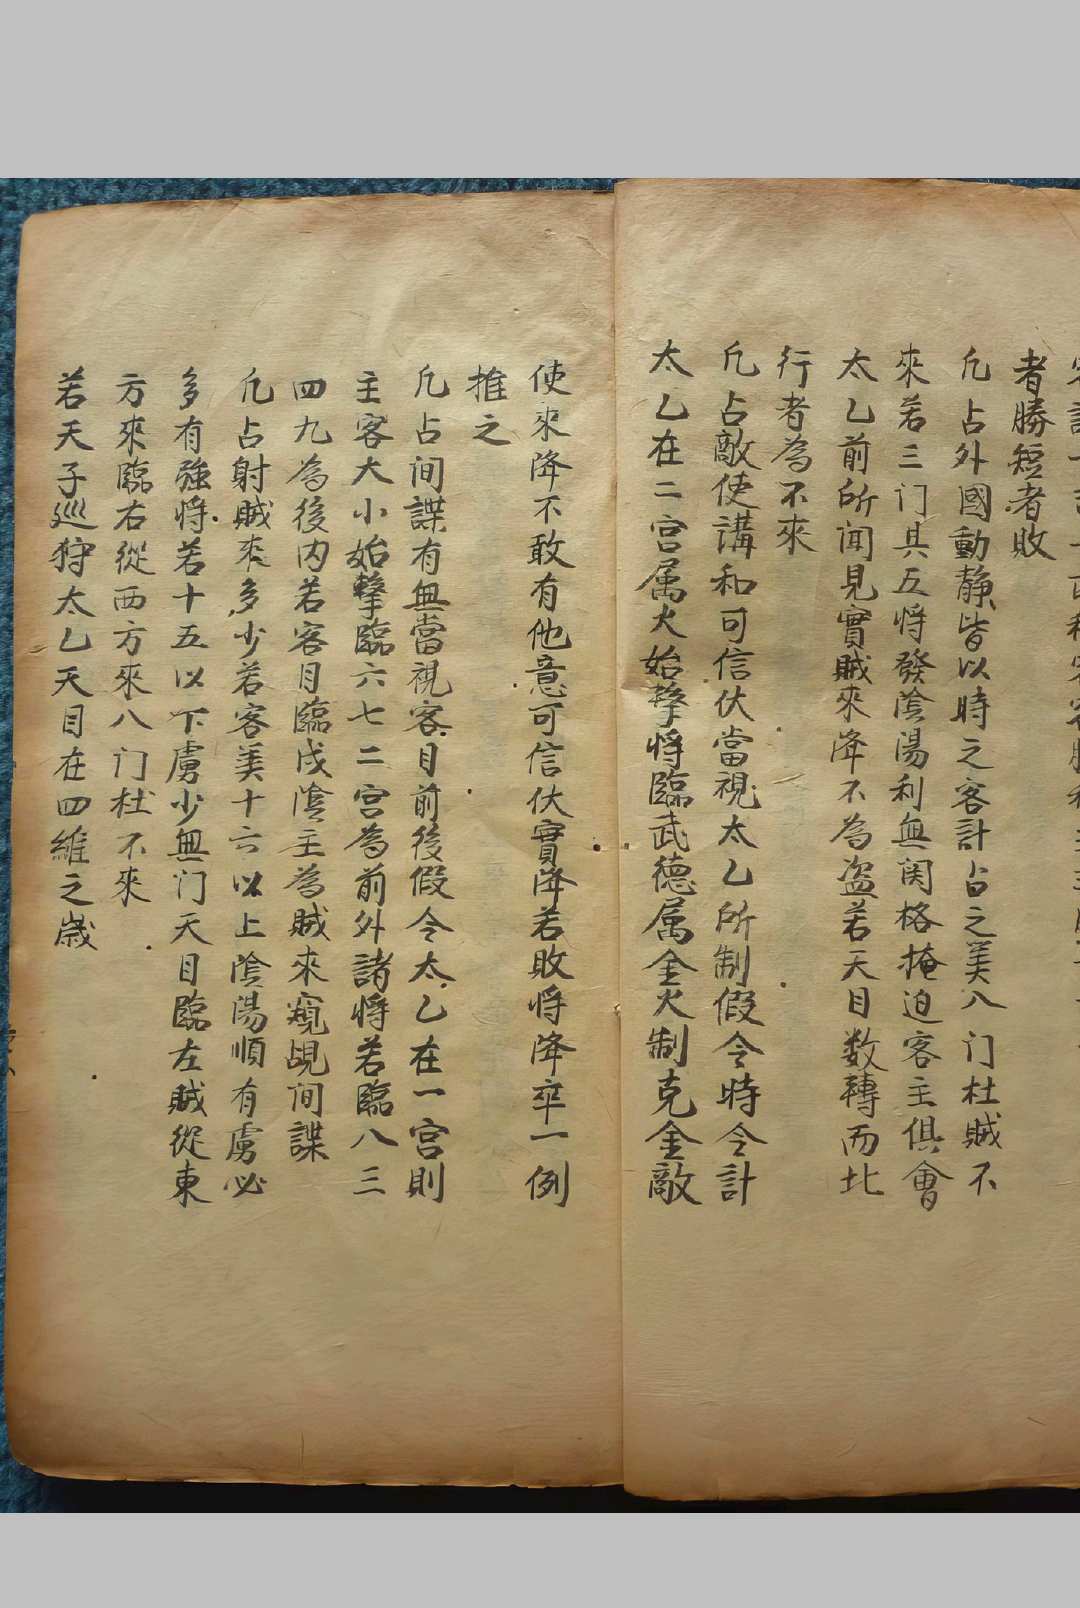 者勝短者敗
凢占外國動静皆以時之客計占之美八门杜賊不
來若三门具五将發陰陽利無関格掩迫客主俱會
太乙前所闻見實賊來降不為盗若天目数轉而北
行者為不來
凢占敵使講和可信伏當視太乙所制假令時令計
太乙在二宫属火始擊将臨武德属金火制克金敵
使來降不敢有他意可信伏實降若敗将降卒一例
推之
凢占间諜有無當視客目前後假令太乙在一宫則
主客大小始擊臨六七二宫為前外諸将若臨八三
四九為後内若客目臨戌陰主為賊來窺覘间諜
凢占射賊來多少若客美十六以上陰陽順有虜必
多有強将若十五以下虜少無门天目臨左賊從東
方來臨右從西方來八门杜不來
若天子巡狩太乙天目在四維之歳